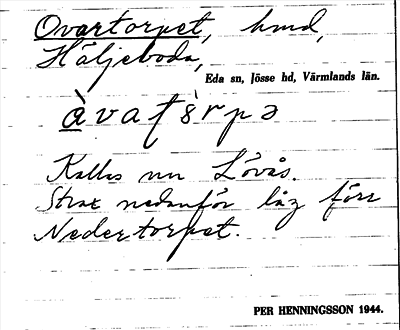 Ovartorpet, hmd,
Häljeboda,
Eda sn, Jösse hd, Värmlands län.
Kallas nu Lövås.
Strax nedanför låg förr
Nedertorpet.
PER HENNINGSSON 1944.